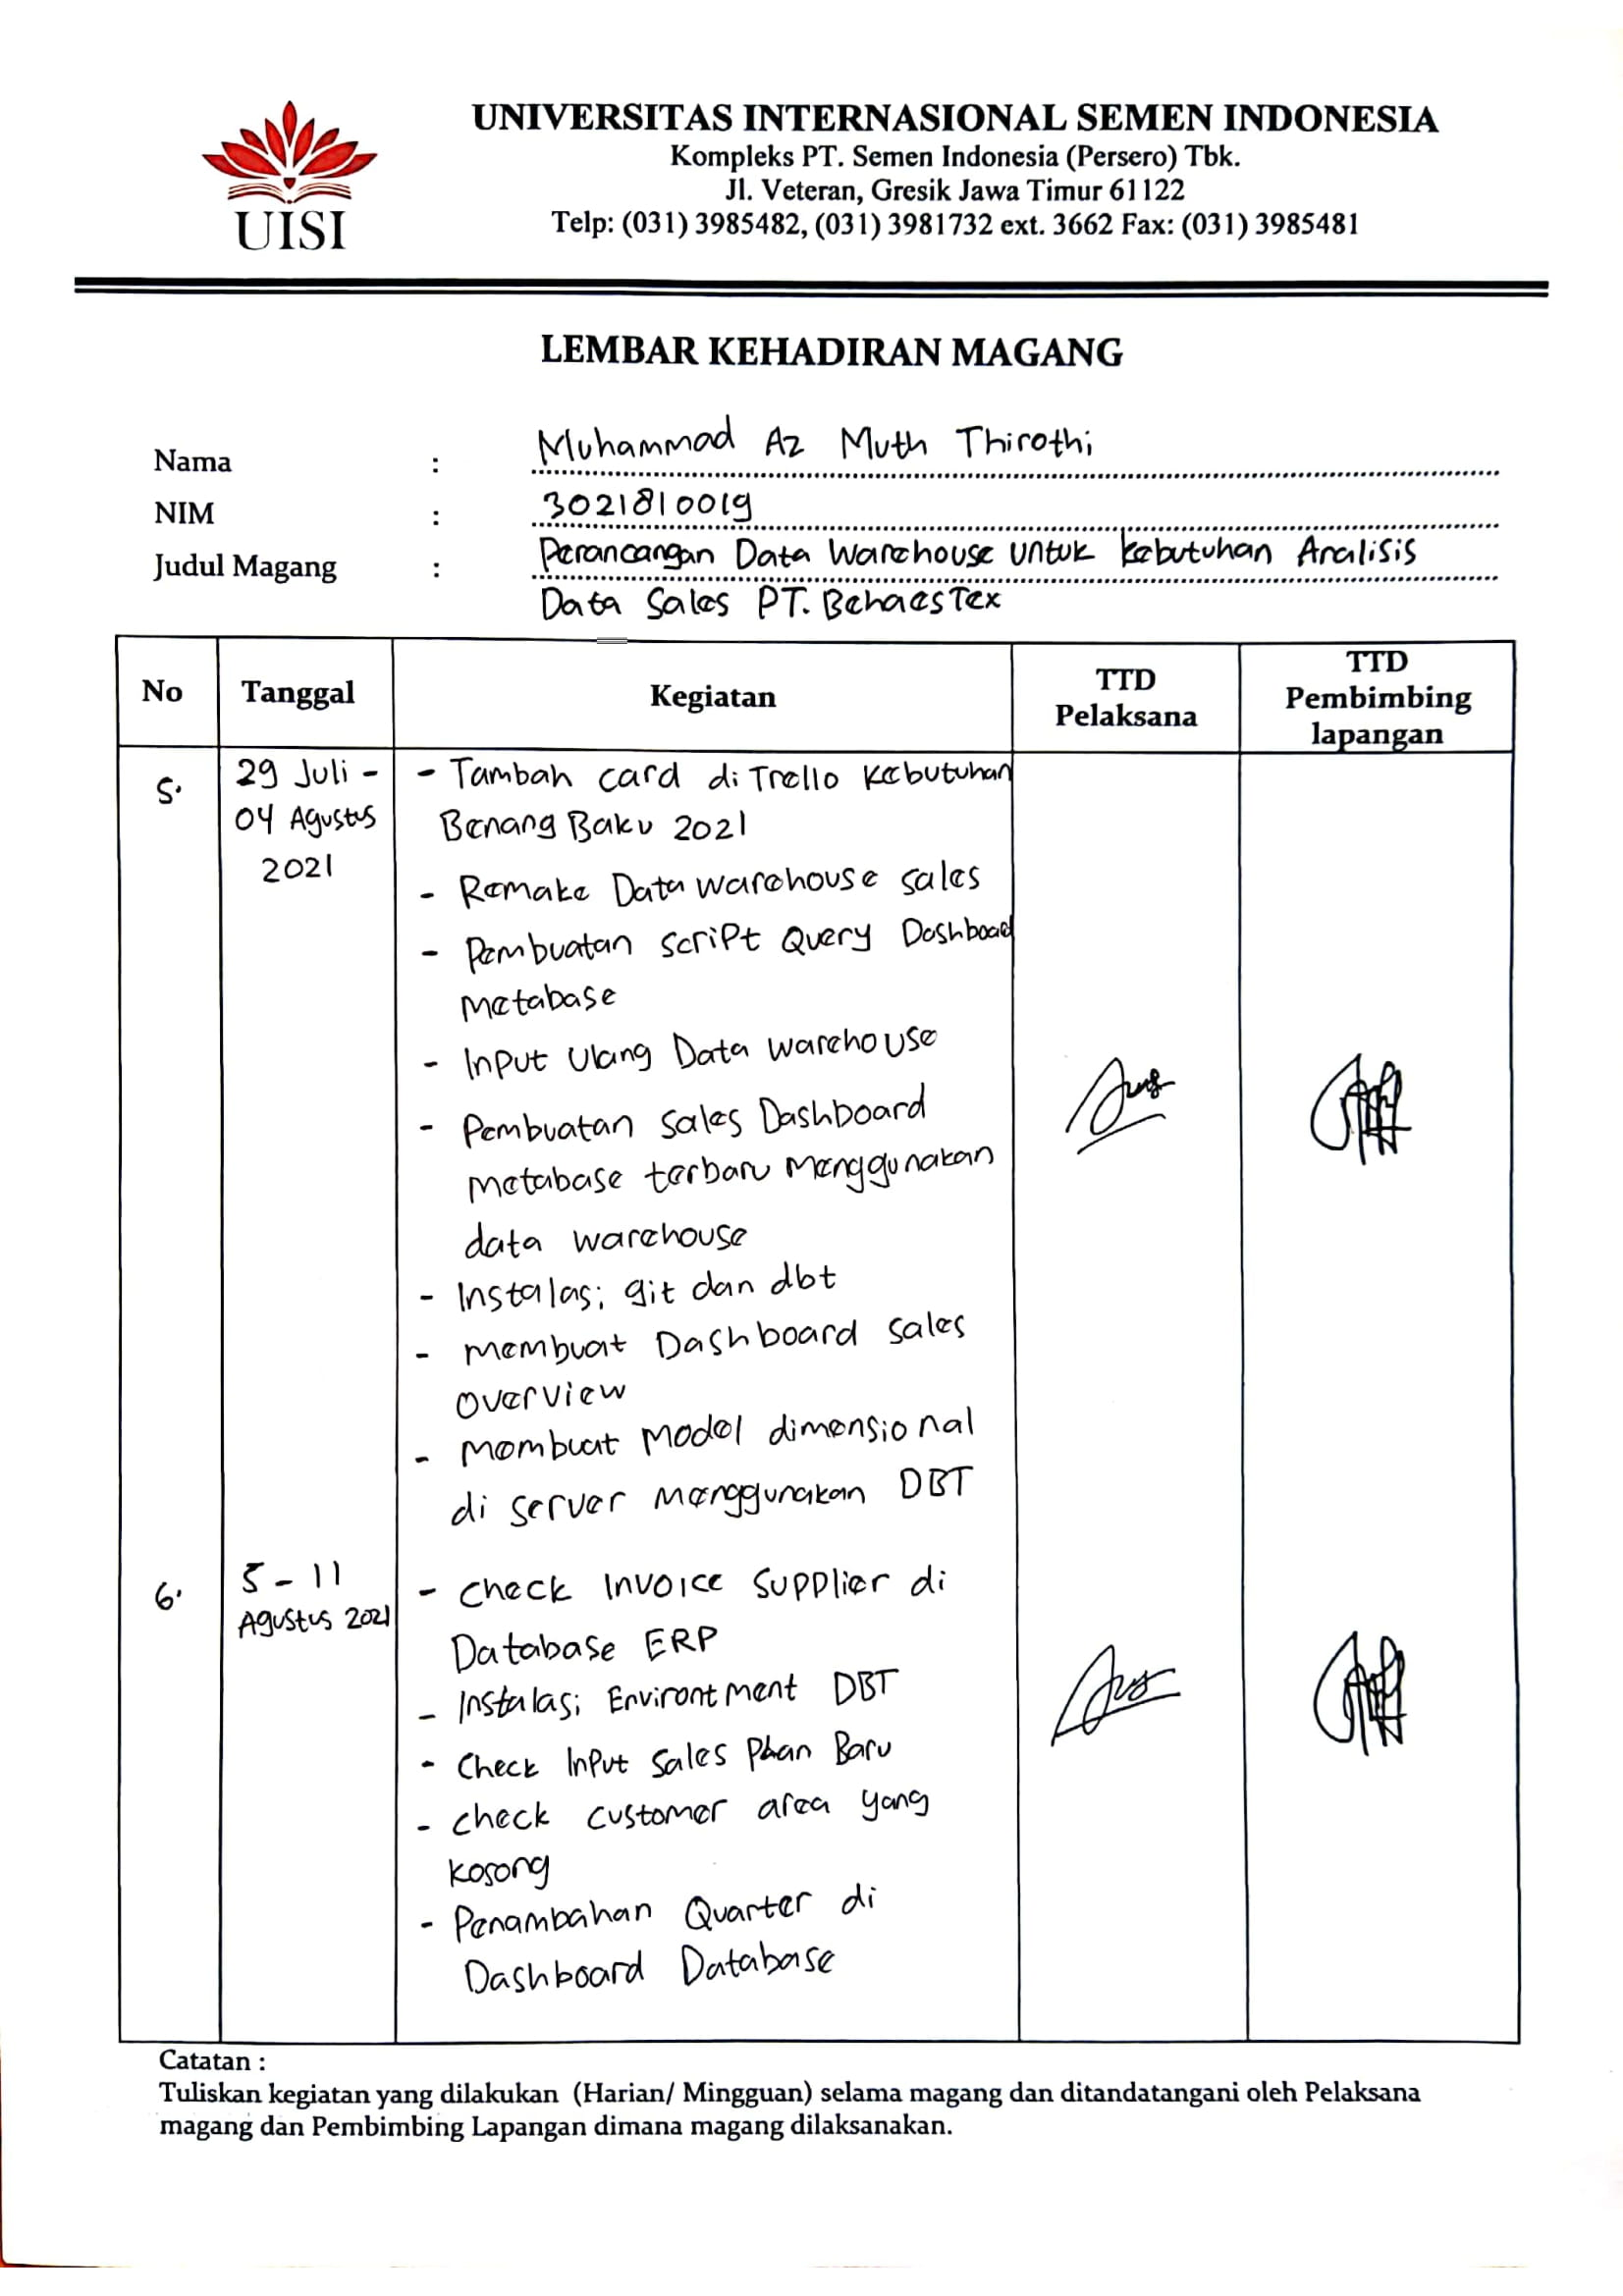 UNIVERSITAS INTERNASIONAL SEMEN INDONESIA
Kompleks PT. Semen Indonesia (Persero) Tbk.
Jl. Veteran, Gresik Jawa Timur 61122
Telp: (031) 3985482, (031) 3981732 ext. 3662 Fax: (031) 3985481
UISI
LEMBAR KEHADIRAN MAGANG
Nama : Muhammad Az Muth Thirothi
NIM : 3021810019
Judul Magang : Perancangan Data Warehouse untuk kebutuhan Analisis
Data Sales PT. BehaesTex
No Tanggal Kegiatan TTD Pelaksana TTD Pembimbing lapangan
5. 29 Juli - 04 Agustus 2021
- Tambah card di Trello Kebutuhan
Benang Baku 2021
- Remake Data warehouse sales
- Pembuatan script Query Dashboad
Metabase
- Input Ulang Data warehouse
- Pembuatan Sales Dashboard
Metabase terbaru Menggunakan
data warehouse
- Instalasi git dan dbt
- Membuat Dashboard sales
overview
- Membuat Model dimensional
di server Menggunakan DBT
6. 5 - 11 Agustus 2021
- Check Invoice Supplier di
Database ERP
- Instalasi Environtment DBT
- Check Input Sales Plan Baru
- check customer area yang
kosong
- Penambahan Quarter di
Dashboard Database
Catatan :
Tuliskan kegiatan yang dilakukan (Harian/ Mingguan) selama magang dan ditandatangani oleh Pelaksana
magang dan Pembimbing Lapangan dimana magang dilaksanakan.